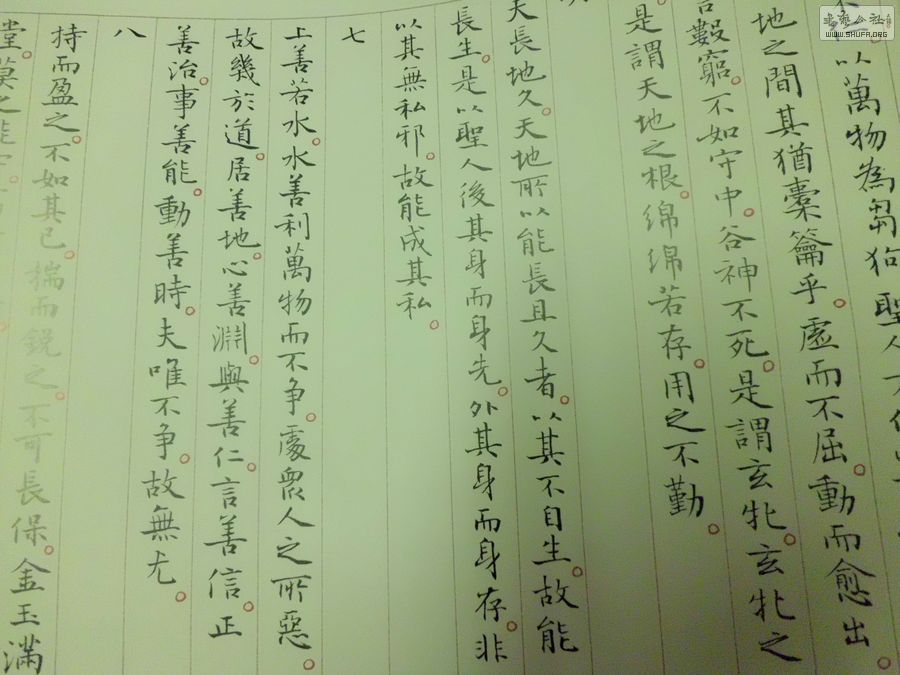 書藝公社
WWW.SHUFA.ORG
以萬物為芻狗聖人不
地之間其猶橐籥乎。虛而不屈。動而愈出。
言數窮。不如守中。谷神不死。是謂玄牝。玄牝之
是謂天地之根。綿綿若存。用之不勤。
天長地久。天地所以能長且久者。以其不自生。故能
長生。是以聖人後其身而身先。外其身而身存。非
以其無私邪。故能成其私。
七
上善若水。水善利萬物而不争。處眾人之所惡。
故幾於道。居善地。心善淵。與善仁。言善信。正
善治。事善能。動善時。夫唯不争。故無尤。
八
持而盈之。不如其已。揣而銳之。不可長保。金玉滿
堂。莫之能守。